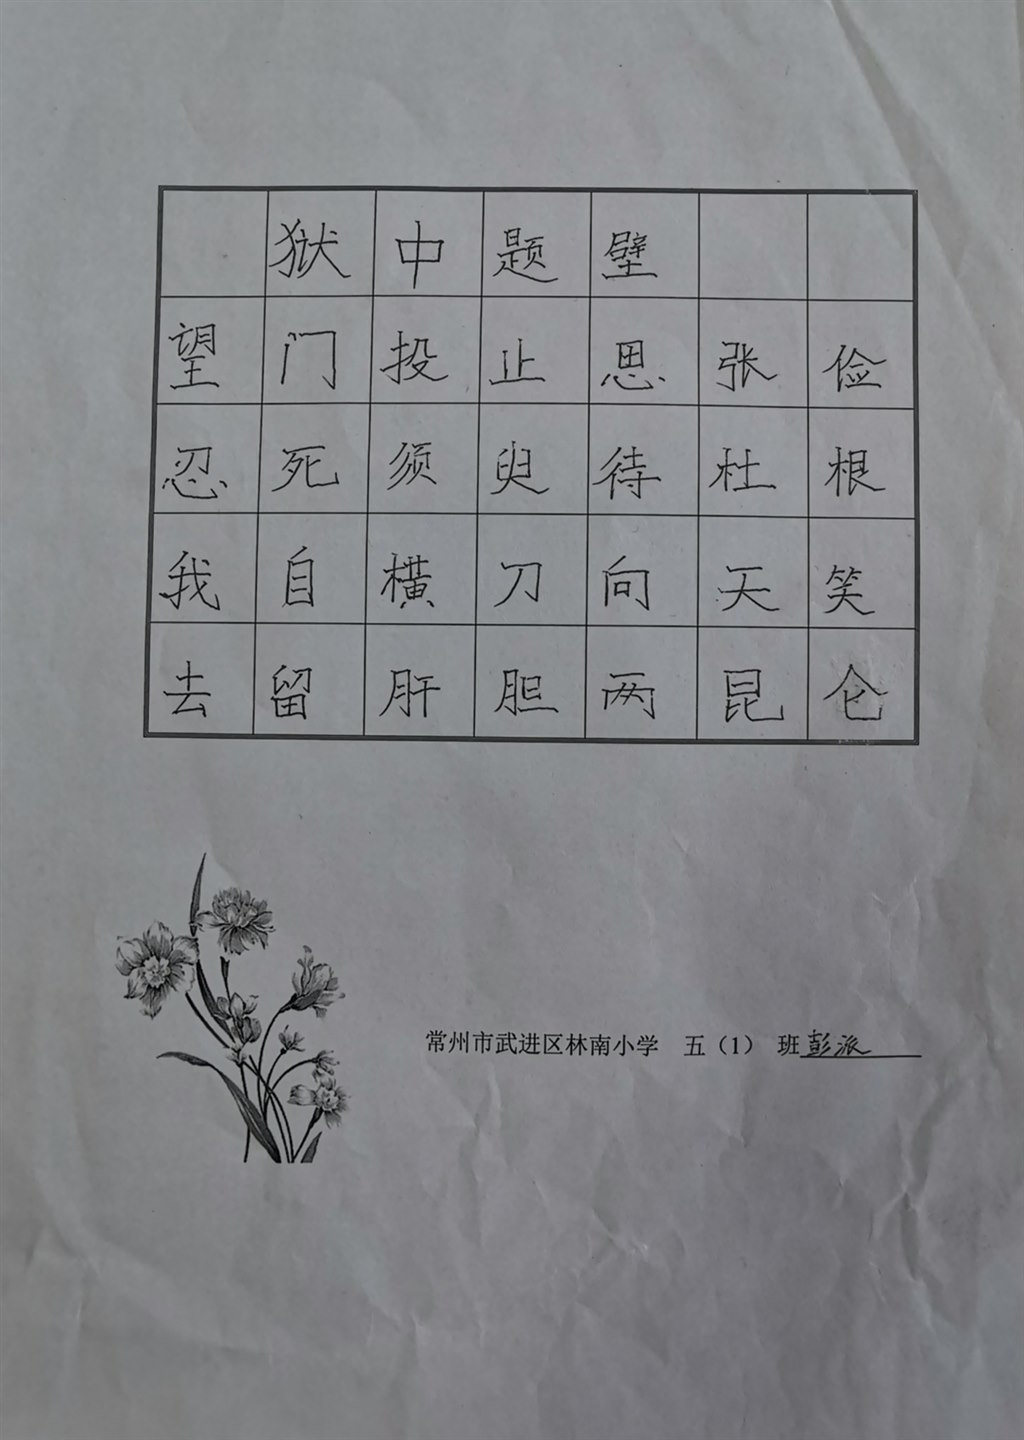 狱中题壁
望门投止思张俭
忍死须臾待杜根
我自横刀向天笑
去留肝胆两昆仑
常州市武进区林南小学 五（1） 班彭派